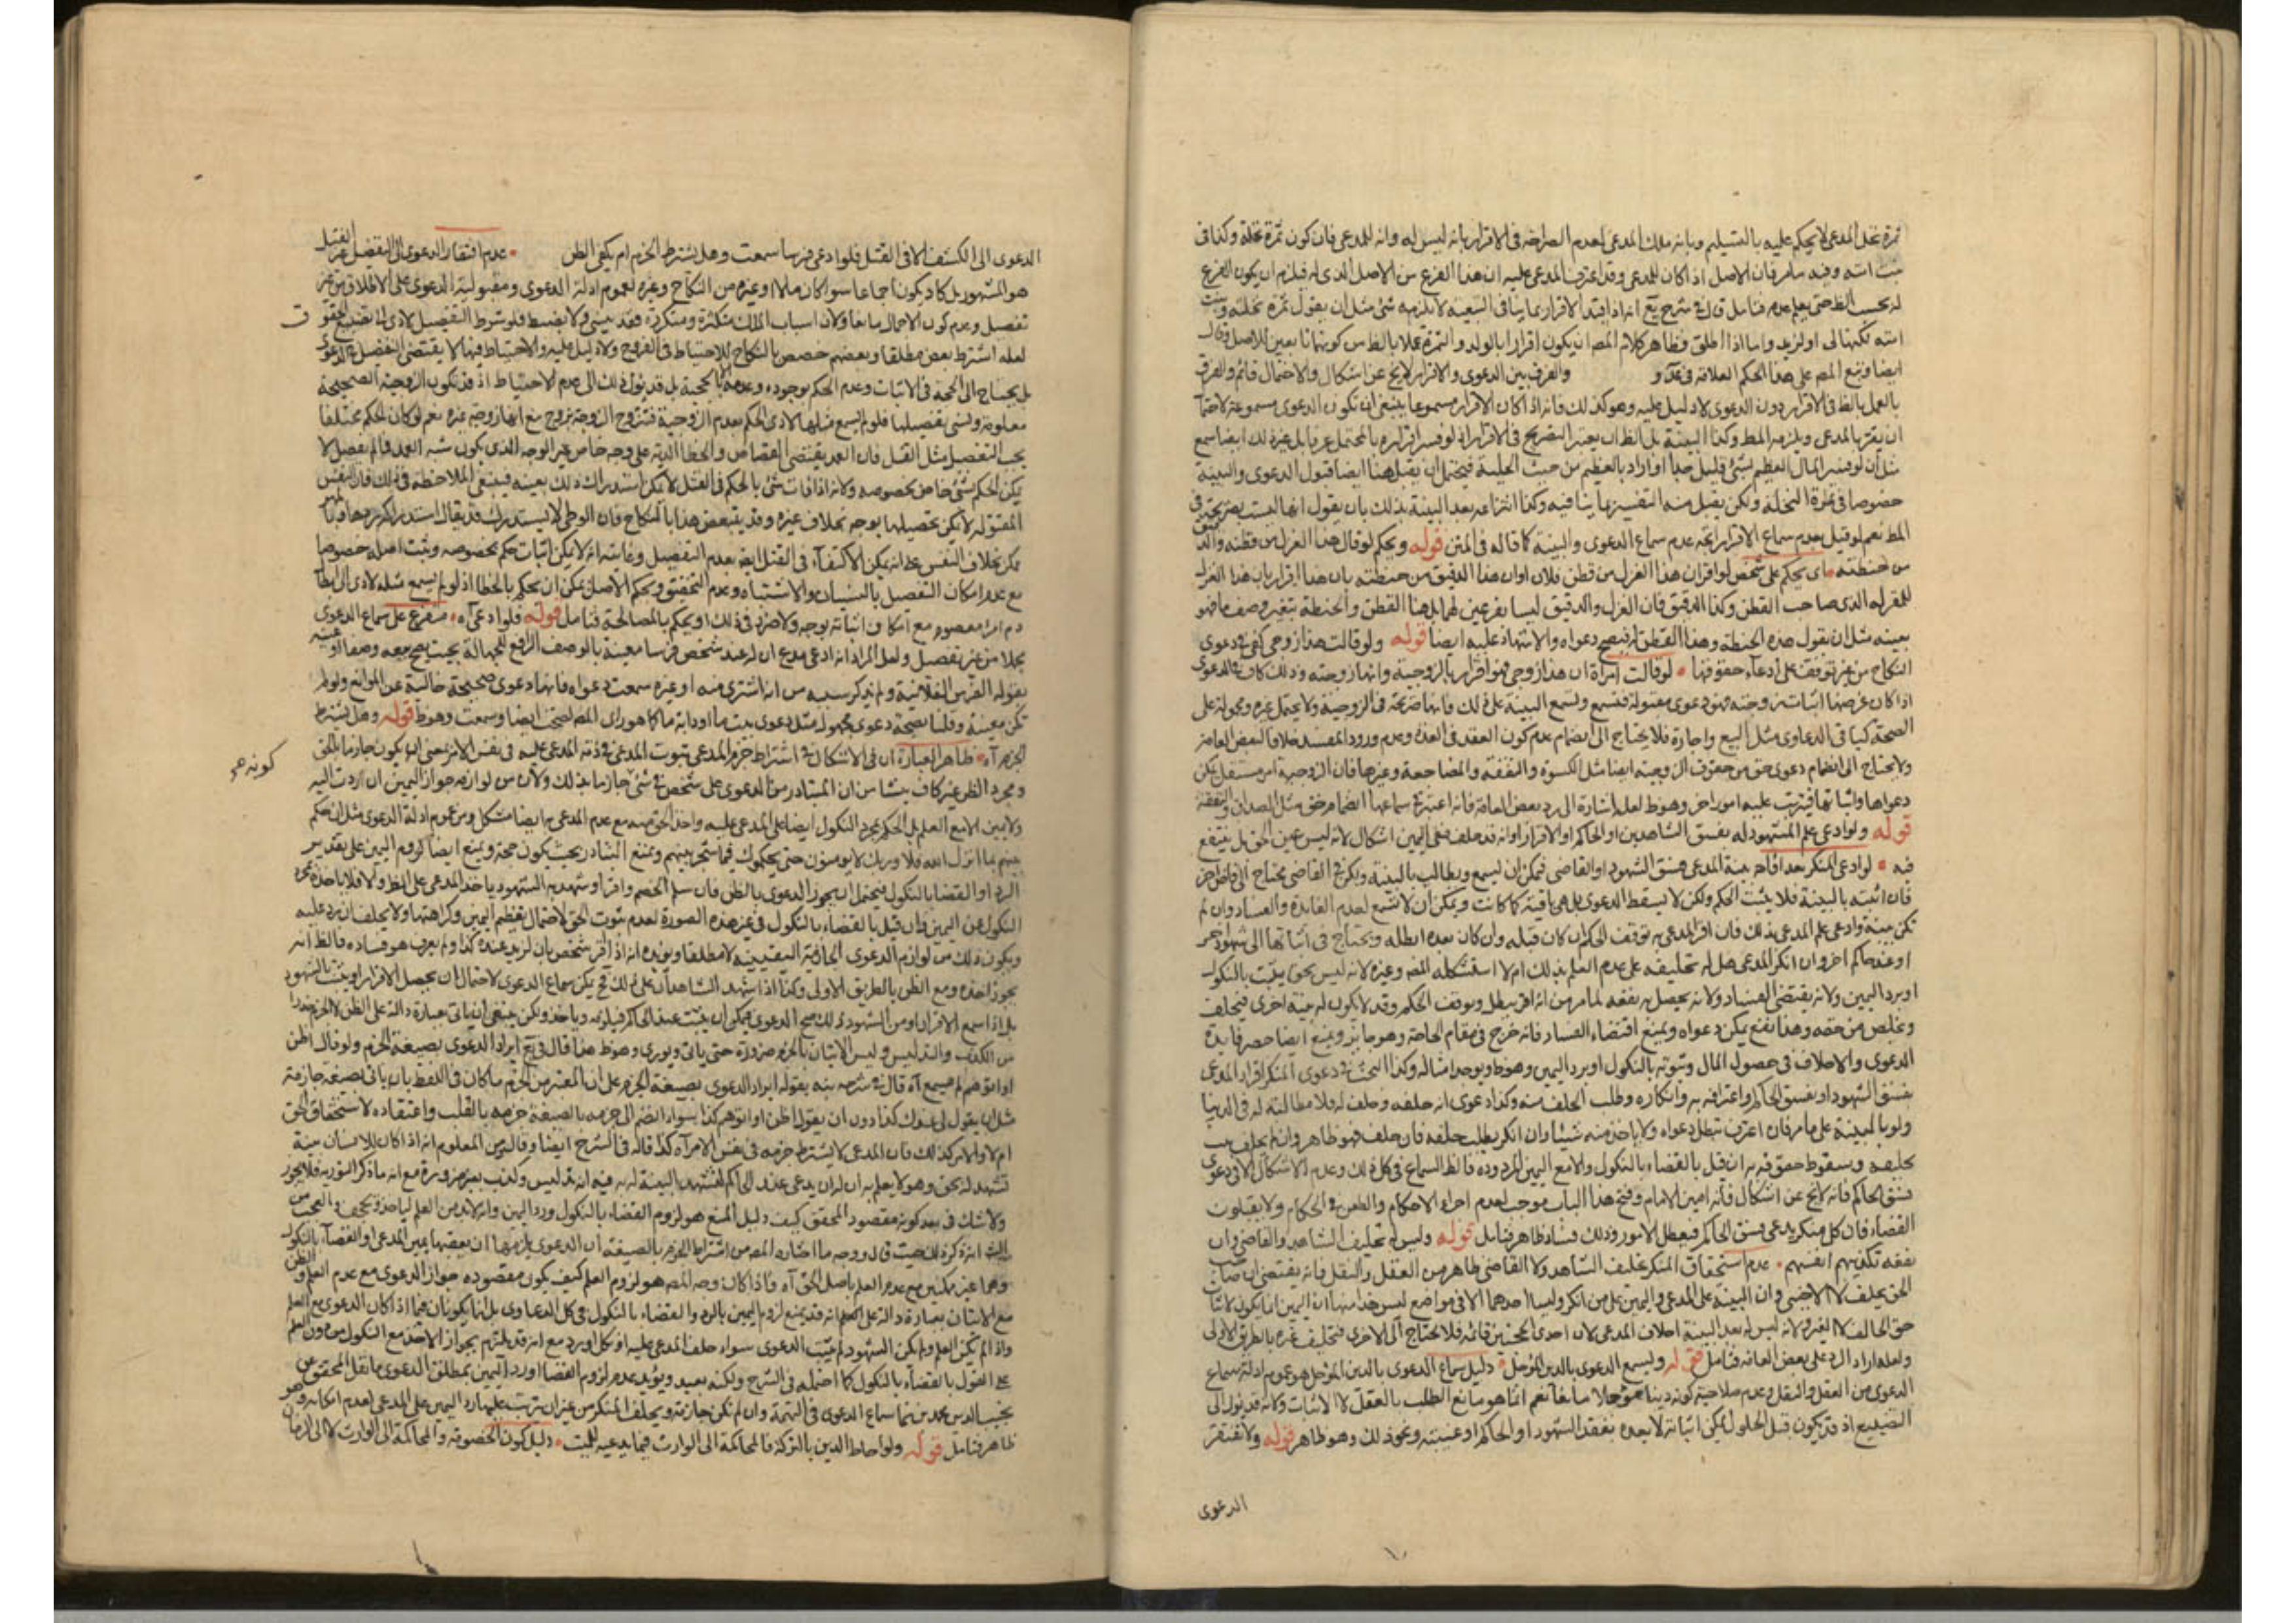 ثمرة نخل المدعي لا يحكم عليه بالتسليم وبانه ملك المدعي لعدم الصراحة في الاقرار بانه ليس له وانه للمدعي فان كون ثمرة نخلة وكذا في
بنت امته وفيه مامر فان الاصل اذا كان للمدعي وقد اعترف المدعى عليه ان هذا الفرع من الاصل الذي له فيلزم ان يكون الفرع
له بحسب الظ حتى يعلم عدمه فتامل قال في شرح يع انه اذا قيد الاقرار بما ينافي التبعية لا يلزمه شئ مثل ان يقول ثمرة نخلته وبنت
امته لكنها لي او لزيد واما اذا اطلق فظاهر كلام المص ان يكون اقرارا بالولد والثمرة عملا بالظ من كونهما تابعين للاصل وقال
ايضا وتبع المص على هذا الحكم العلامة في عد و والفرق بين الدعوى والاقرار لا يخ عن اشكال والاحتمال قائم والفرق
بالعمل بالظ في الاقرار دون الدعوى لا دليل عليه وهو كذلك فانه اذا كان الاقرار مسموعا ينبغي ان تكون الدعوى مسموعة لاحتمال
ان يقر بها المدعي ويلزمه المط وكذا البينة بل الظ ان يعتبر التصريح في الاقرار اذ لو فسر اقراره بالمحتمل عرفا بل غيره لك ايضا سمع
مثل ان لو فسر المال العظيم بشئ قليل جدا او اراد بالعظيم من حيث الحلية فيحتمل ان يقبل هنا ايضا قبول الدعوى والبينة
خصوصا في ثمرة النخلة ولكن يقبل منه التفسير بما ينافيه وكذا انتزاعه بعد البينة بذلك بان يقول انها ليست بصريحة في
المط نعم لو قيل بعدم سماع الاقرار اتجه عدم سماع الدعوى والبينة كما قاله في المتن قوله ويحكم لو قال هذا الغزل من قطنه والدقيق
من حنطته اي يحكم على شخص لو اقر ان هذا الغزل من قطن فلان او ان هذا الدقيق من حنطته بان هذا اقرار بان هذا الغزل
للمقر له الذي صاحب القطن وكذا الدقيق فان الغزل والدقيق ليسا بفرعين لهما بل هذا القطن والحنطة بتغير وصف ما فهو
بعينه مثل ان يقول هذه الحنطة وهذا القطن له فيصح دعواه والاشهاد عليه ايضا قوله ولو قالت هذا زوجي كفى في دعوى
النكاح من غير توقف على ادعاء حقوقها لو قالت امراة ان هذا زوجي فهو اقرار بالزوجية وانها زوجته وذلك كاف في الدعوى
اذا كان غرضها اثبات زوجته فهو دعوى مقبولة فتسمع وتسمع البينة على ذلك فانها صريحة في الزوجية ولا يحتمل غيره ومحمولة على
الصحة كما في الدعاوى مثل البيع واجارة فلا يحتاج الى انضمام عدم كون العقد في العدة وعدم ورود المفسد خلافا لبعض العامة
ولا يحتاج الى انضمام دعوى حق من حقوق الزوجية ايضا مثل الكسوة والنفقة والمضاجعة وغيرها فان الزوجية امر مستقل يمكن
دعواها واثباتها فيترتب عليه امور اخر وهو ظ لعله اشارة الى رد بعض العامة فانه اعتبر في سماعها انضمام حق مثل الصداق والنفقة
قوله ولو ادعى علم المشهود له بفسق الشاهدين او الحاكم او الاقرار او انه قد حلف ففي اليمين اشكال لانه ليس عين الحق بل ينتفع
فيه لو ادعى المنكر بعد اقامة بينة المدعي فسق الشهود او القاضي فيمكن ان يسمع ويطالب بالبينة ولكن في القاضي يحتاج الى قاض اخر
فان اثبته بالبينة فلا يثبت الحكم ولكن لا يسقط الدعوى بل هي باقية كما كانت ويمكن ان لا تسمع لعدم الفائدة والفساد وان لم
تكن بينة وادعى علم المدعي بذلك فان اقر المدعي به توقف الحكم ان كان قبله وان كان بعده ابطله ويحتاج في اثباتها الى شهود اخر
او عند حاكم اخر وان انكر المدعي هل له تحليفه على عدم العلم بذلك ام لا استشكله المص وغيره لانه ليس بحق يثبت بالنكول
او برد اليمين ولانه يقتضي الفساد ولانه يحصل به نفعه لما مر من انه اقر يبطل ويوقف الحكم وقد لا يكون له بينة اخرى فيحلف
ويخلص من حقه وهذا نفع يمكن دعواه ويمنع اقتضاء الفساد فانه خرج في مقام الحاجة وهو جائز ويمنع ايضا حصر فائدة
الدعوى والاحلاف في حصول المال وثبوته بالنكول او برد اليمين وهو ظ ويوجد امثاله وكذا البحث في دعوى المنكر اقرار المدعي
بفسق الشهود او بفسق الحاكم واعترافه به وانكاره وطلب الحلف منه وكذا دعوى انه حلفه وحلف له فلا مطالبة له في الدنيا
ولو بالبينة على ما مر فان اعترف تبطل دعواه ولا ياخذ منه شيئا وان انكر يطلب حلفه فان حلف فهو ظاهر وان لم يحلف يجب
تحليفه وسقوط حقوقه به ان قيل بالقضاء بالنكول والا مع اليمين المردودة فالظ السماع في كل ذلك وعدم الاشكال الا في دعوى
فسق الحاكم فانه لا يخ عن اشكال فانه امين الامام وفتح هذا الباب موجب لعدم اجراء الاحكام والطعن في الحكام ولا يقبلون
القضاء فان كل منكر يدعي فسق الحاكم فيعطل الامور وذلك فساد ظاهر فتامل قوله وليس له تحليف الشاهد والقاضي وان
نفعه تكذيبهم انفسهم عدم استحقاق المنكر تحليف الشاهد ولا القاضي ظاهر من العقل والنقل فانه يقتضي ان صاحب
الحق يحلف لا الاجنبي وان البينة على المدعي واليمين على من انكر وليسا احدهما الا في مواضع ليس هذا منها ان اليمين انما يكون لاثبات
حق الحالف لا الغير ولانه ليس له بعد البينة احلاف المدعي لان احدى الحجتين قائمة فلا يحتاج الى الاخرى فتحليف غيره بالطريق الاولى
ولعله اراد الرد على بعض العامة فتامل قوله وليسمع الدعوى بالدين المؤجل دليل سماع الدعوى بالدين المؤجل هو عموم ادلة سماع
الدعوى من العقل والنقل وعدم صلاحية كونه دينا مؤجلا مانعا نعم انما هو مانع الطلب بالعقل لا الاثبات ولانه قد يؤل الى
التضييع اذ قد يكون قبل الحلول يمكن اثباته لا بعده بفقد الشهود او الحاكم او غيبته ونحو ذلك وهو ظاهر قوله ولا تفتقر
الدعوى
الدعوى الى الكشف الا في القتل فلو ادعى فرسا سمعت وهل يشترط الجزم ام يكفي الظن عدم افتقار الدعوى الى التفصيل في غير القتل
هو المشهور بل كاد يكون اجماعا سواء كان مالا او غيره من النكاح وغيره لعموم ادلة الدعوى ومقبولية الدعوى على الاطلاق من غير
تفصيل وعدم كون الاجمال مانعا ولان اسباب الملك متكثرة ومتكررة فقد ينسى ولا يضبط فلو شرط التفصيل لادى الى تضييع الحقوق
لعله اشترط بعض مطلقا وبعضهم خصص بالنكاح للاحتياط في الفروج ولا دليل عليه والاحتياط فيها لا يقتضي التفصيل في الدعوى
بل يحتاج الى الحجة في الاثبات وعدم الحكم بوجوده وعدمه الا بالحجة بل قد يؤل ذلك الى عدم الاحتياط اذ قد تكون الزوجية الصحيحة
معلومة ونسي تفصيلها فلو لم يسمع مثلها لادى الحكم بعدم الزوجية فتتزوج الزوجة بزوج مع انها زوجة غيره نعم لو كان الحكم مختلفا
يجب التفصيل مثل القتل فان العمد يقتضي القصاص والخطا الدية على وجه خاص غير الوجه الذي يكون شبه العمد فما لم يفصل لا
يمكن الحكم بشئ خاص بخصوصه ولانه اذا فات شئ بالحكم في القتل لا يمكن استدراك ذلك بعينه فينبغي الملاحظة في ذلك فان النفس
المقتولة لا يمكن تحصيلها بوجه بخلاف غيره وقد ينتقض هذا بالنكاح فان الوطي لا يستدرك قد يقال استدراكه بمهرها
يمكن بخلاف النفس على انه يمكن الاكتفاء في القتل ايضا بعدم التفصيل وغايته انه لا يمكن اثبات حكم بخصوصه ويثبت اصله خصوصا
مع عدم امكان التفصيل بالنسيان والاشتباه وعدم التحقق وبحكم الاصل يمكن ان يحكم بالخطا اذ لو لم يسمع مثله لادى الى ابطال
دم امرء معصوم مع امكان اثباته بوجه ولا ضرر في ذلك او يحكم بالمصالحة فتامل قوله فلو ادعى اه متفرع على سماع الدعوى
مجملا من غير تفصيل ولعل المراد انه ادعى مدع ان له عند شخص فرسا معينة بالوصف الرافع للجهالة بحيث يصح معه وصفا او عينه
بقوله الفرس الفلانية ولم يذكر سببه من انه اشترى منه او غيره سمعت دعواه فانها دعوى صحيحة خالية عن الموانع ولو لم
تكن معينة وقلنا بصحة دعوى مجهولة مثل دعوى بيت ما او دابة ما كما هو راي المص لصحت ايضا وسمعت وهو ظ قوله وهل يشترط
الجزم اه ظاهر العبارة ان في الاشكال في اشتراط جزم المدعي بثبوت المدعى في ذمة المدعى عليه في نفس الامر بمعنى ان يكون جازما بالحق
كونه هو
ومجرد الظن غير كاف ينشا من ان المتبادر من الدعوى على شخص في شئ جازما بذلك ولان من لوازمه جواز اليمين ان اردت اليه
ولا يمين الا مع العلم بل الحكم بمجرد النكول ايضا على المدعى عليه واخذ الحق منه مع عدم المدعي به ايضا مشكل ومن عموم ادلة الدعوى مثل ان احكم
بينهم بما انزل الله فلا وربك لا يومنون حتى يحكموك فيما شجر بينهم ويمنع التبادر بحيث يكون حجة ويمنع ايضا لزوم اليمين على تقدير
الرد او القضا بالنكول فيحتمل ان يجوز الدعوى بالظن فان سلم الخصم واقر او شهد به الشهود ياخذ المدعي على الظ والا فلا ياخذه بمجرد
النكول عن اليمين وان قيل بالقضاء بالنكول في غير هذه الصورة لعدم ثبوت الحق لاحتمال تعظيم اليمين وكراهتها ولا يحلف ان يرد عليه
ويكون ذلك من لوازم الدعوى الجازمة اليقينية لا مطلقا ويؤيده انه اذا اقر شخص بان لزيد عنده كذا ولم يعرف هو فساده فالظ انه
يجوز اخذه ومع الظن بالطريق الاولى وكذا اذا شهد الشاهدان على ذلك فح يمكن سماع الدعوى لاحتمال ان يحصل الاقرار او يثبت بالشهود
بل اذا سمع الاقرار او من الشهود ذلك صح الدعوى فيمكن ان يثبت عند الحاكم فيلزمه وياخذ ولكن ينبغي ان ياتي بعبارة دالة على الظن لا الجزم حذرا
من الكذب والتدليس وليس الاتيان بالجزم ضرورة حتى ياتي ويوري وهو ظ هذا قال في يع ايراد الدعوى بصيغة الجزم ولو قال اظن
او اتوهم لم تسمع اه قال في شرحه نبه بقوله ايراد الدعوى بصيغة الجزم على ان المعتبر من الجزم ما كان في اللفظ بان ياتي بصيغة جازمة
مثل ان يقول لي عندك كذا دون ان يقول اظن او اتوهم كذا سواء انضم الى جزمه بالصيغة جزمه بالقلب واعتقاده لاستحقاق الحق
ام لا والامر كذلك فان المدعي لا يشترط جزمه في نفس الامر اه كذا قاله في الشرح ايضا وقال من المعلوم انه اذا كان للانسان بينة
تشهد له بحق وهو لا يعلم به ان له ان يدعي عند الحاكم لتشهد البينة له به فيه انه تدليس وكذب بغير ضرورة مع انه ما ذكر التورية فلا يجوز
ولا شك في بعد كونه مقصود المحقق كيف دليل المنع هو لزوم القضاء بالنكول ورد اليمين وانه لا بد من العلم لياخذه ويحلف والعجب من
الش انه ذكر ذلك حيث قال ووجه ما اختاره المص من اشتراط الجزم بالصيغة ان الدعوى يلزمها ان يعقبها يمين المدعي او القضاء بالنكول
وهما غير ممكنين مع عدم العلم باصل الحق اه فاذا كان وجه المص هو لزوم العلم كيف يكون مقصوده جواز الدعوى مع عدم العلم والظن
مع الاتيان بعبارة دالة على العلم انه قد يمنع لزوم اليمين بالرد والقضاء بالنكول في كل الدعاوى بل انما يكونان فيما اذا كان الدعوى مع العلم
واذا لم يكن العلم ولم يكن الشهود لم يثبت الدعوى سواء حلف المدعى عليه او نكل او رد مع انه قد يلتزم بجواز الاخذ مع النكول من دون العلم
على القول بالقضاء بالنكول كما احتمله في الشرح ولكنه بعيد ويؤيد عدم لزوم القضا او رد اليمين بمطلق الدعوى ما نقل المحقق عن
نجيب الدين محمد بن نما سماع الدعوى في التهمة وان لم تكن جازمة ويحلف المنكر من غير ان يترتب عليها رد اليمين على المدعي لعدم امكانه وهو
ظاهر فتامل قوله ولو احاط الدين بالتركة فالمحاكمة الى الوارث فيما يدعيه للميت دليل كون الخصومة والمحاكمة الى الوارث لا الى الديان